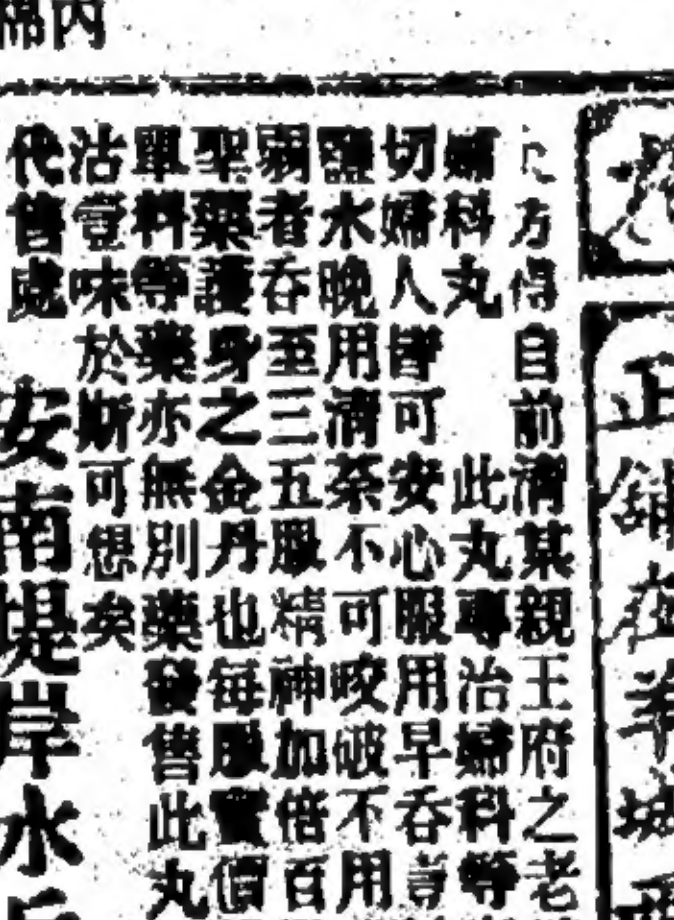 內
正舖在羊城
方得自前清某親王府之老
婦科丸 此丸專治婦科等
切婦人皆可安心服用早吞
鹽水晚用清茶不可咬破不用
弱者吞至三五服精神加倍百
聖藥護身之金丹也每服實價
單料等藥亦無別藥發售此丸
沽壹味於斯可想矣
代售處 安南堤岸水